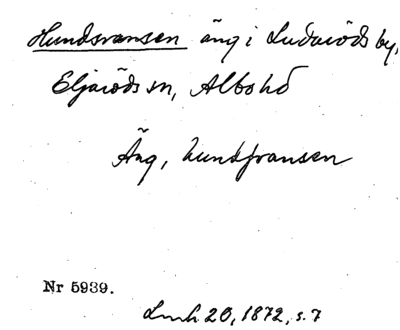 Hundsvansen äng i Ludaröds by,
Eljaröds sn, Albo hd
Äng, hundsvansen
Nr 5939.
Lmh 20, 1872, s. 7